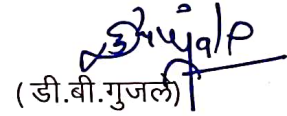 (डी.बी.गुजले)